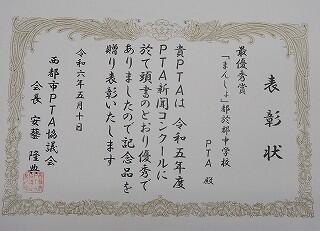 表彰状
最優秀賞
「まんしょ」都於郡中学校
PTA 殿
貴PTAは 令和五年度
PTA新聞コンクールに
於て頭書のとおり優秀で
ありましたので記念品を
贈り表彰いたします
令和六年五月十日
西都市PTA協議会
会長 安藝 隆典